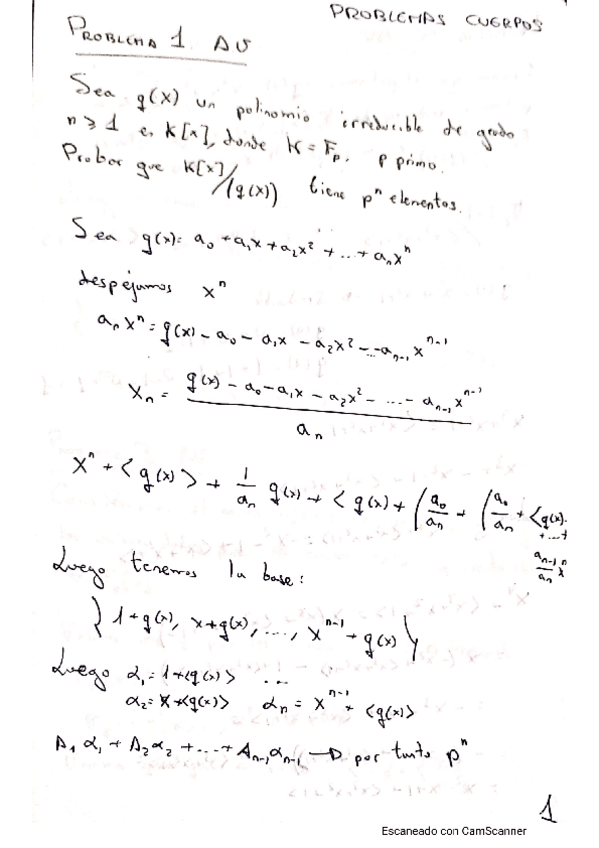 PROBLEMAS CUERPOS
PROBLEMA 1. AU
Sea q(x) un polinomio irreducible de grado
n ≥ 1 en K[x], donde K = Fp, p primo.
Probar que K[x]/(q(x)) tiene pⁿ elementos.
Sea q(x) = a₀ + a₁x + a₂x² + ... + aₙxⁿ
despejamos xⁿ
aₙxⁿ = q(x) - a₀ - a₁x - a₂x² - ... - aₙ₋₁xⁿ⁻¹
Xₙ = (q(x) - a₀ - a₁x - a₂x² - ... - aₙ₋₁xⁿ⁻¹) / aₙ
xⁿ + <q(x)> + 1/aₙ q(x) + <q(x) + (a₀/aₙ + (a₀/aₙ + <q(x).
+ ... +
aₙ₋₁/aₙ x
Luego tenemos la base:
{1 + q(x), x + q(x), ..., xⁿ⁻¹ + q(x)}
Luego α₁ = 1 + <q(x)> ...
α₂ = x + <q(x)> αₙ = xⁿ⁻¹ + <q(x)>
A₁α₁ + A₂α₂ + ... + Aₙ₋₁αₙ₋₁ → por tanto pⁿ
1
Escaneado con CamScanner